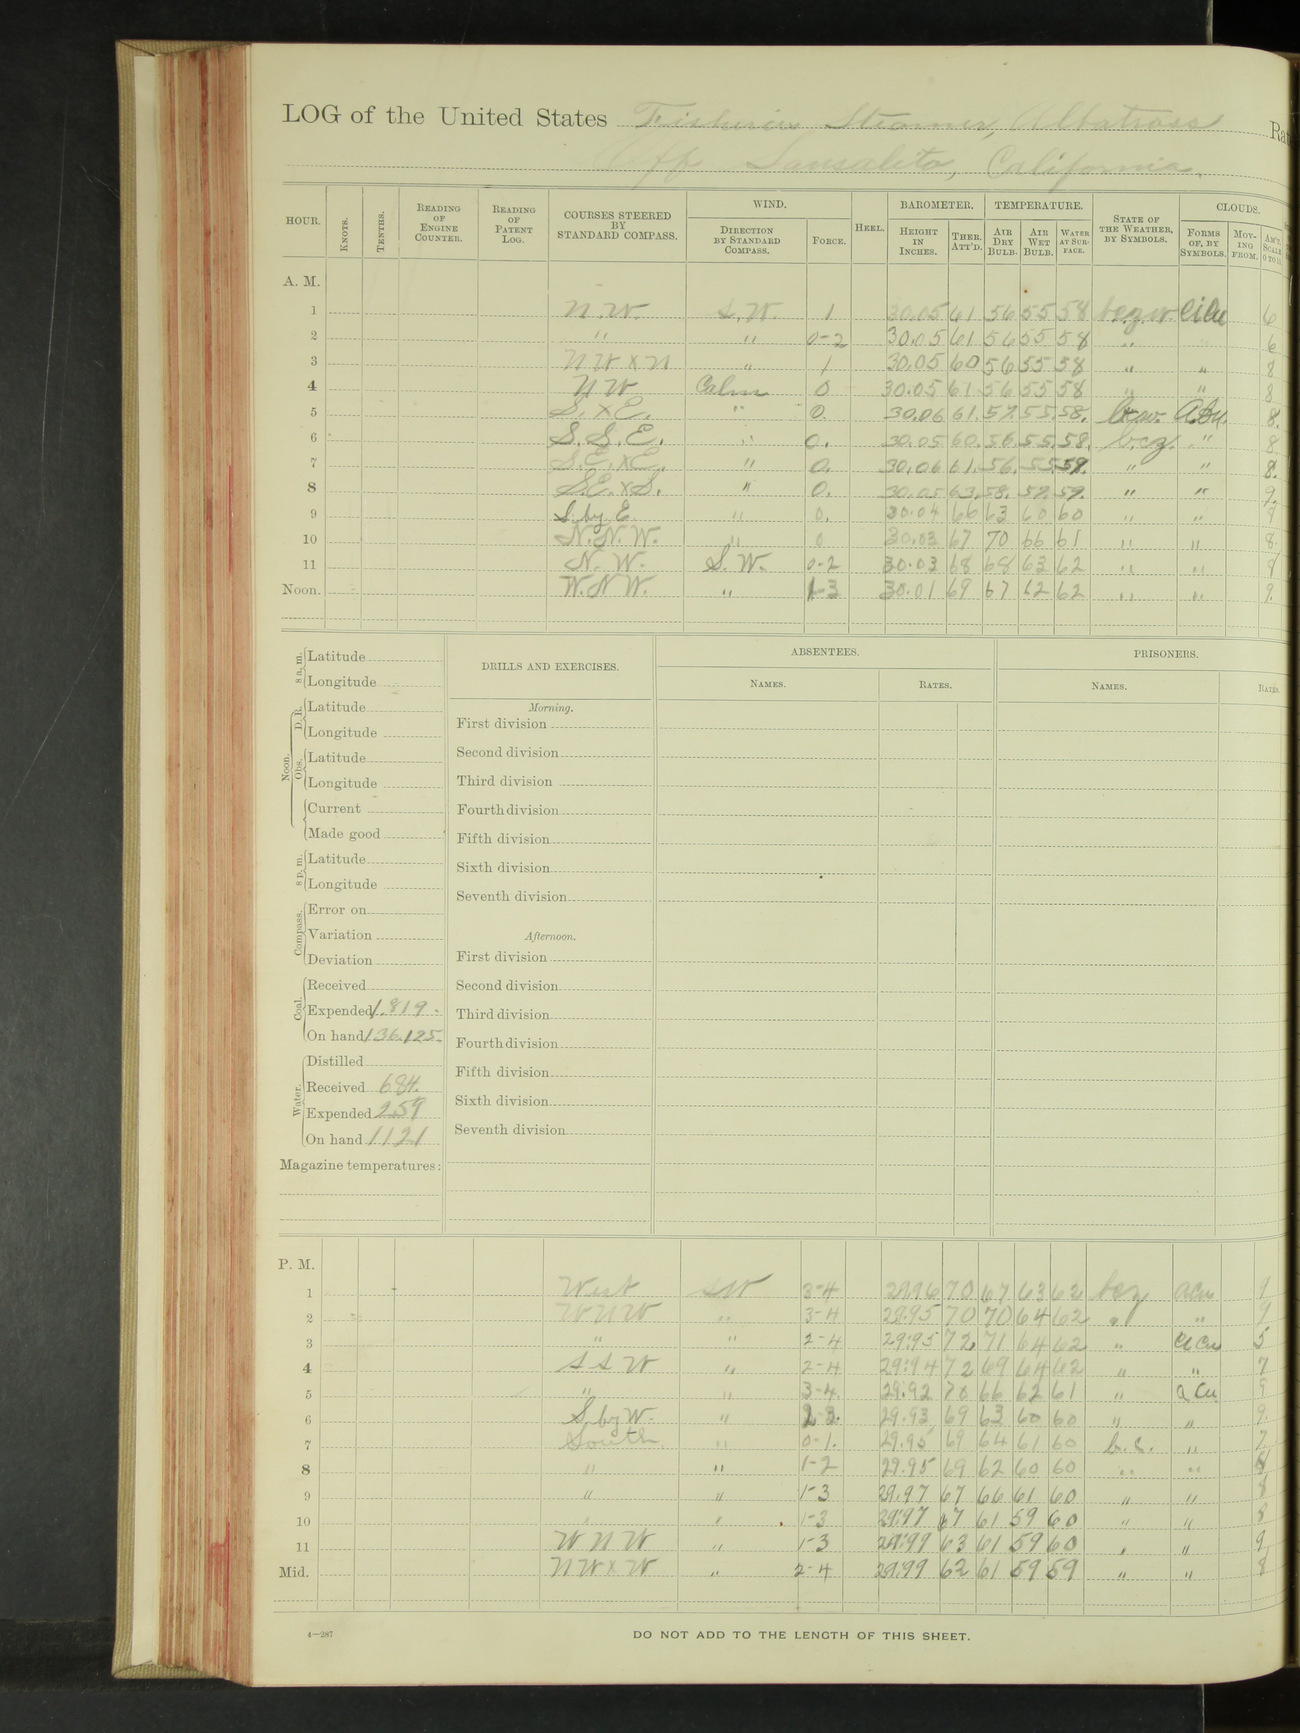 LOG of the United States Fisheries Steamer, Albatross Rat
Off Sausalito, California.
HOUR. KNOTS. TENTHS. READING OF ENGINE COUNTER. READING OF PATENT LOG. COURSES STEERED BY STANDARD COMPASS. WIND. DIRECTION BY STANDARD COMPASS. FORCE. HEEL. BAROMETER. HEIGHT IN INCHES. THER. ATT'D. TEMPERATURE. AIR DRY BULB. AIR WET BULB. WATER AT SURFACE. STATE OF THE WEATHER, BY SYMBOLS. CLOUDS. FORMS OF, BY SYMBOLS. MOVING FROM. AM'T. SCALE 0 TO 10.
A. M.
1 N.W. S.W. 1 30.05 61 56 55 58 bczw CiCu 6
2 " " 0-2 30.05 61 56 55 58 " 6
3 NWxN " 1 30.05 60 56 55 58 " " 8
4 NW Calm 0 30.05 61 56 55 58 " " 8
5 S.xE. " 0. 30.06 61. 57. 55. 58. 8.
6 S.S.E. " 0. 30.05 60. 56. 55. 58. bcz. " 8.
7 S.E.xE. " 0. 30.06 61. 56. 55. 59. " " 8.
8 S.E.xS. " 0. 30.05 63. 58. 57. 59. " " 9.
9 S. by E. " 0. 30.04 66 63 60 60 " " 9
10 N.N.W. " 0 30.03 67 70 66 61 " " 8
11 N.W. S.W. 0-2 30.03 68 68 63 62 " " 9
Noon. W.N.W. " 1-3 30.01 69 67 62 62 " " 9.
8 a. m. Latitude
Longitude
Noon. D. R. Latitude
Longitude
Obs. Latitude
Longitude
Current
Made good
8 p. m. Latitude
Longitude
Compass. Error on
Variation
Deviation
Coal. Received
Expended 1.819.
On hand 136.125
Water. Distilled
Received 684.
Expended 259
On hand 1121
Magazine temperatures:
DRILLS AND EXERCISES.
Morning.
First division
Second division
Third division
Fourth division
Fifth division
Sixth division
Seventh division
Afternoon.
First division
Second division
Third division
Fourth division
Fifth division
Sixth division
Seventh division
ABSENTEES.
NAMES. RATES.
PRISONERS.
NAMES. RATES.
P. M.
1 West SW 3-4 29.96 70 67 63 62 bcz acu 9
2 WNW " 3-4 29.95 70 70 64 62 " " 9
3 " " 2-4 29.95 72 71 64 62 " 5
4 SSW " 2-4 29.94 72 69 64 62 " " 7
5 " " 3-4. 29.92 70 66 62 61 " a Cu
6 S. by W. " 2-3. 29.93 69 63 60 60 " " 9.
7 South. " 0-1. 29.95 69 64 61 60 b.c. " 7
8 " " 1-2 29.95 69 62 60 60 " " 8
9 " " 1-3 29.97 67 66 61 60 " " 8
10 " " 1-3 29.97 67 61 59 60 " " 8
11 WNW " 1-3 29.99 63 61 59 60 " " 9
Mid. NWxW " 2-4 29.99 62 61 59 59 " " 8
4—287
DO NOT ADD TO THE LENGTH OF THIS SHEET.